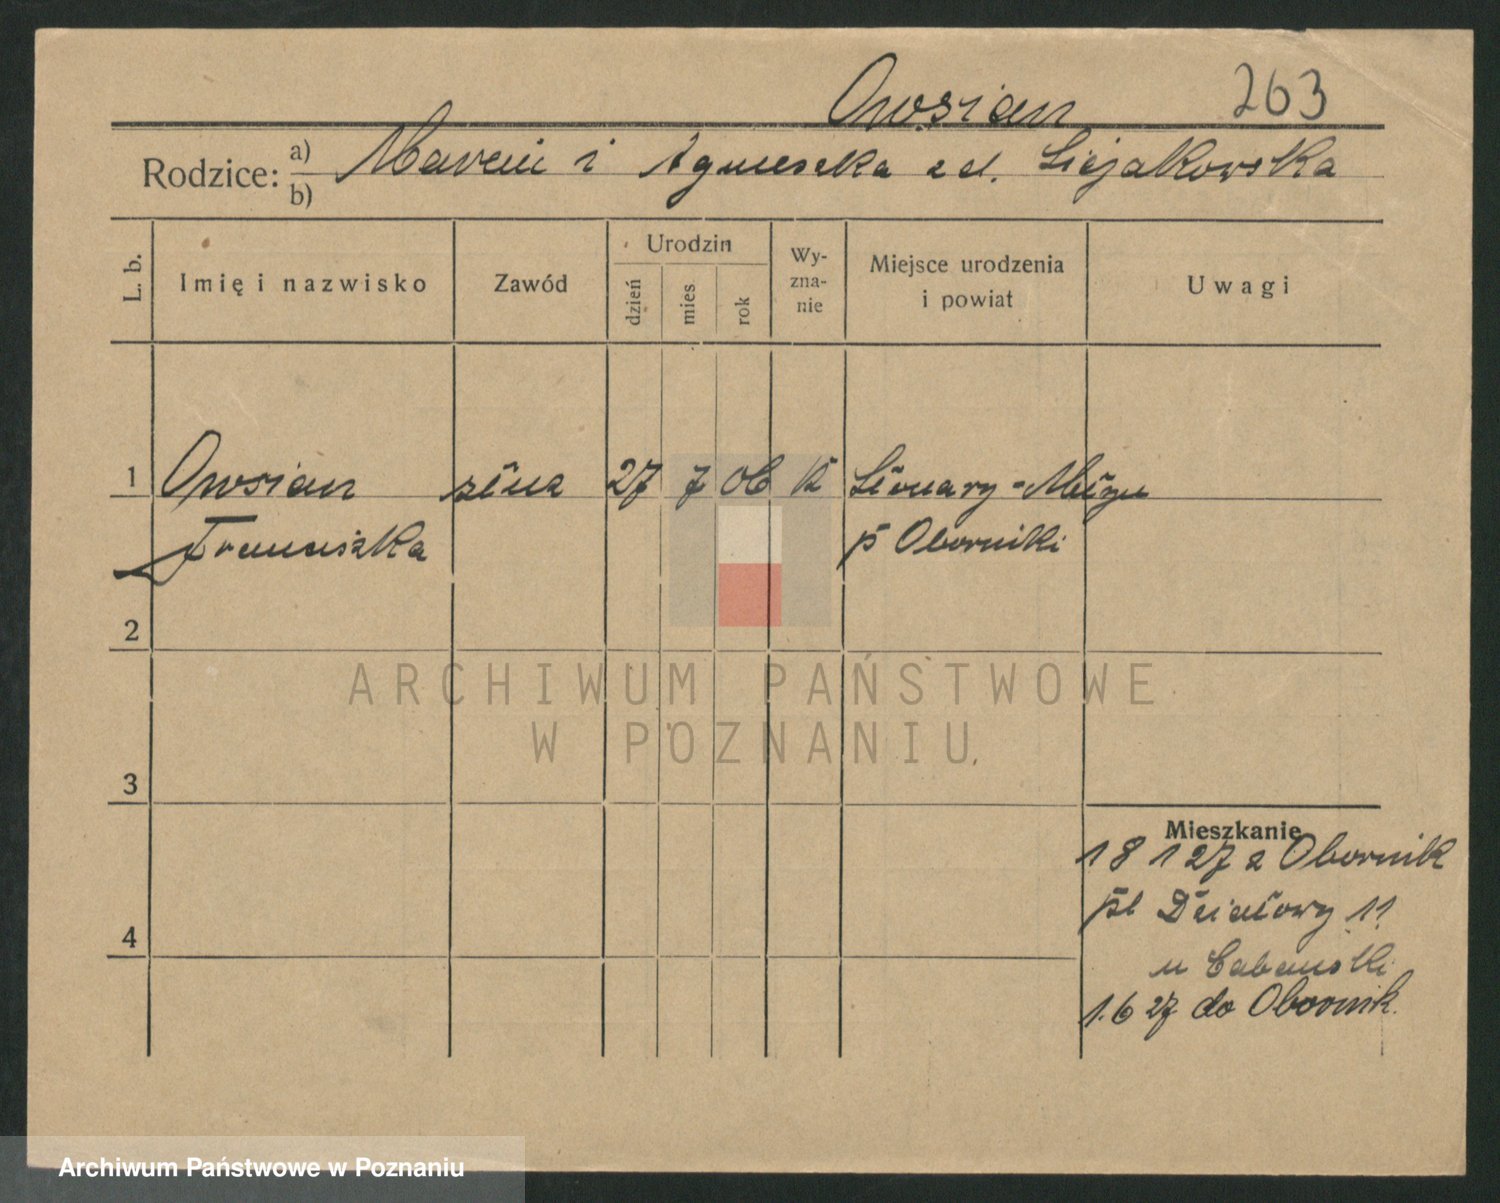 Owsian 263
Rodzice: a) Marcin i Agnieszka zd.
b)
L. b. Imię i nazwisko Zawód Urodzin dzień mies rok Wyznanie Miejsce urodzenia i powiat Uwagi
1 Owsian 27 7 06 K
Franciszka p Oborniki
2
ARCHIWUM PAŃSTWOWE
W POZNANIU
3
Mieszkanie
18 1 27 z Obornik
pl Działowy 11
4
u Cabański
1.6 27 do Obornik.
Archiwum Państwowe w Poznaniu